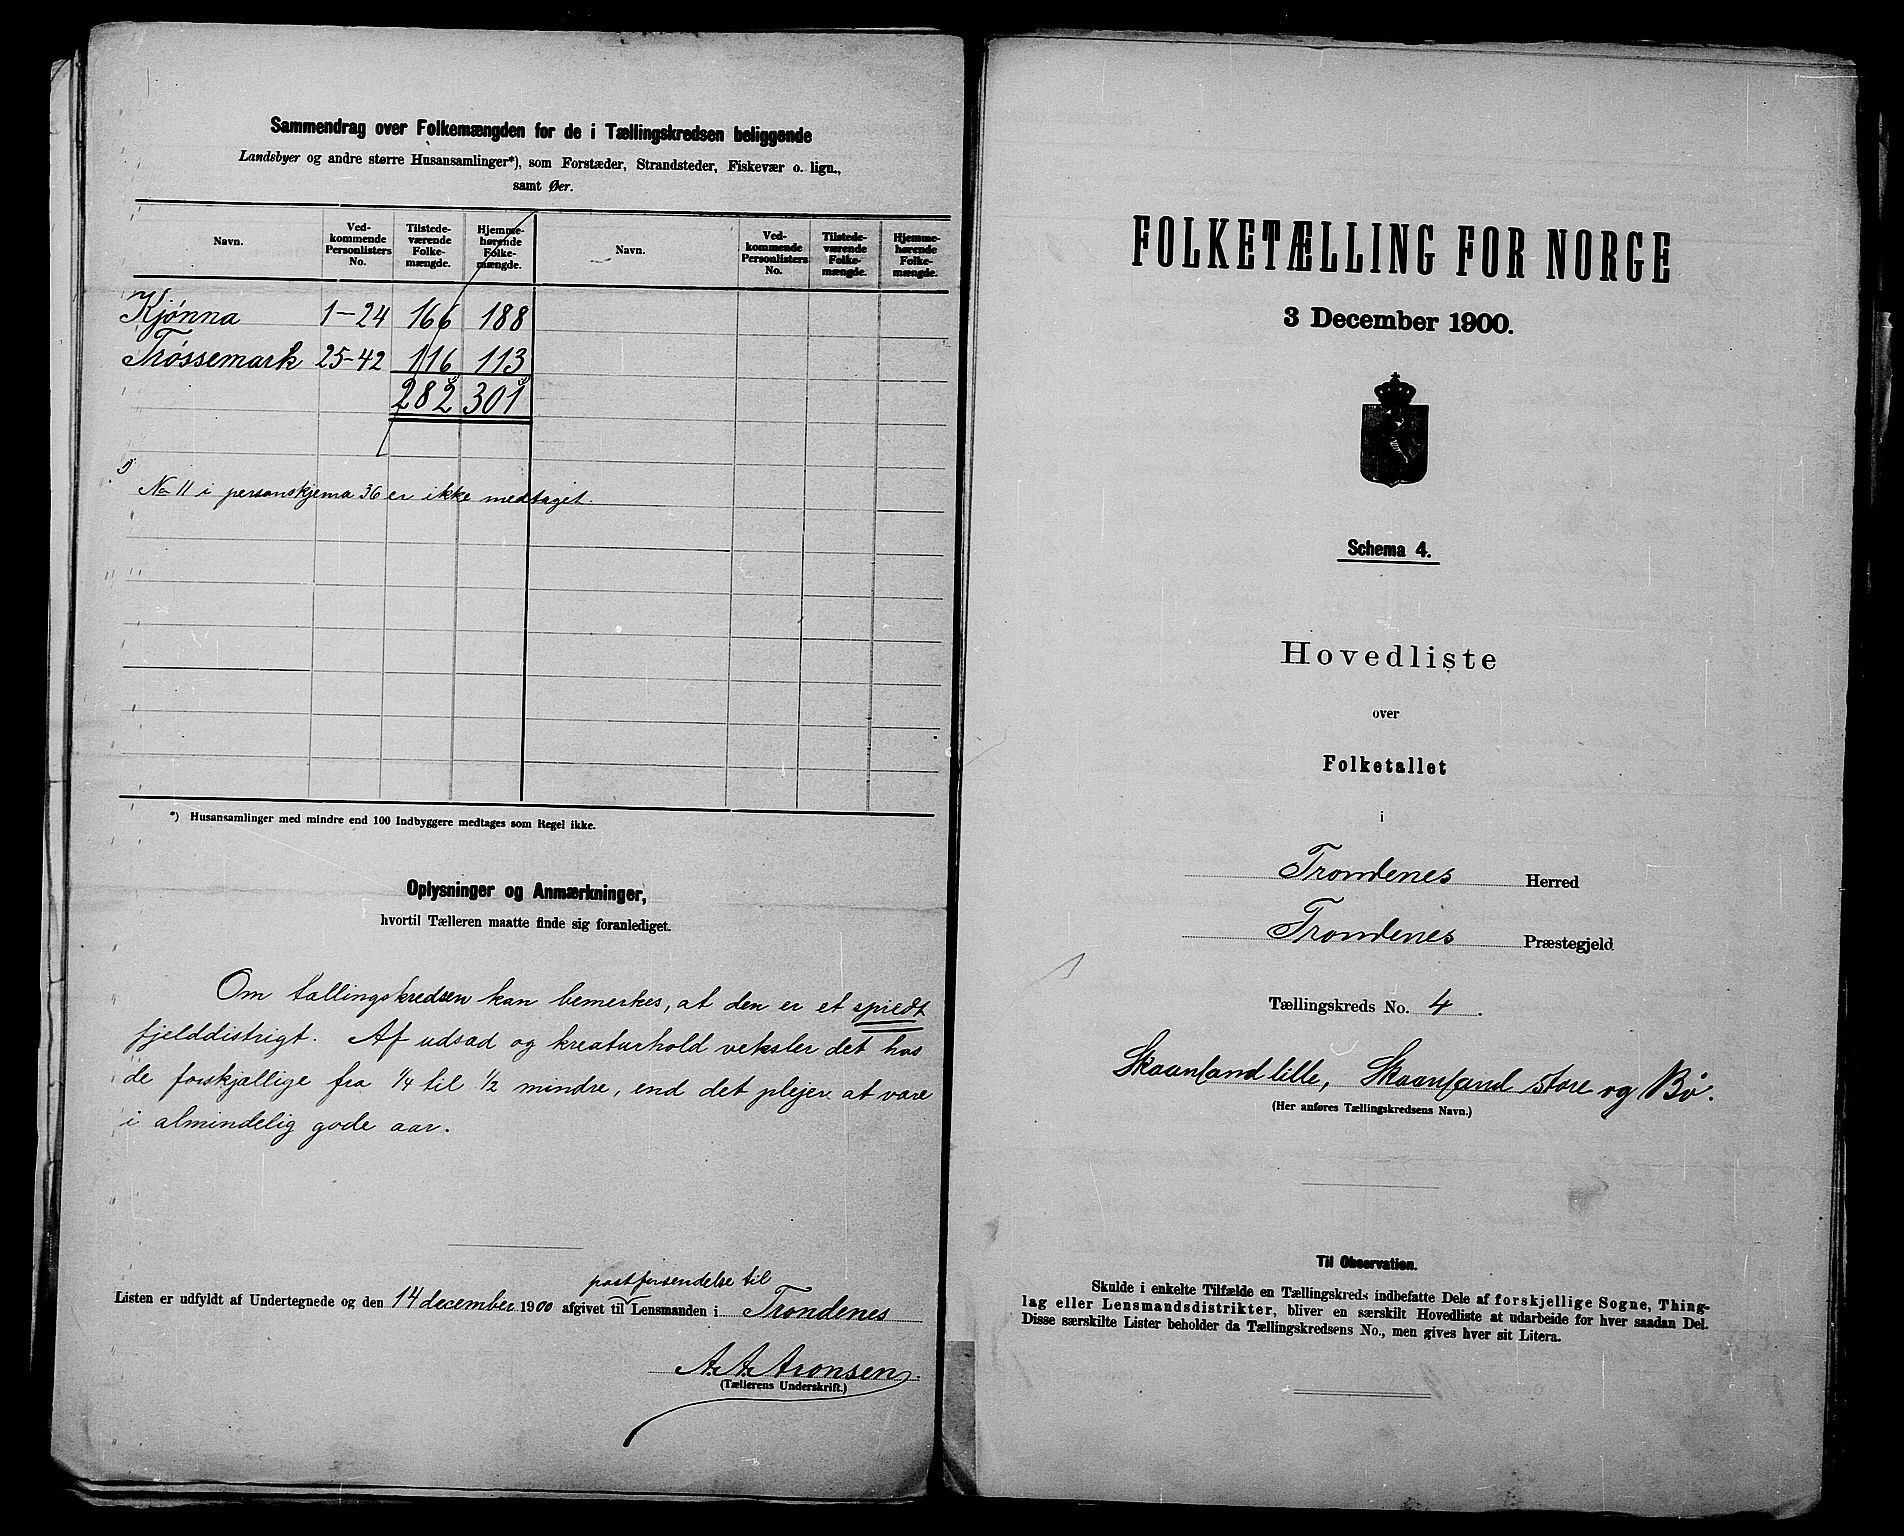 Sammendrag over Folkemængden for de i Tællingskredsen beliggende
Landsbyer og andre større Husansamlinger*), som Forstæder, Strandsteder, Fiskevær o. lign.,
samt Øer.
Navn. Ved-kommende Personlisters No. Tilstede-værende Folke-mængde. Hjemme-hørende Folke-mængde. Navn. Ved-kommende Personlisters No. Tilstede-værende Folke-mængde. Hjemme-hørende Folke-mængde.
Kjønna 1-24 166 188
Trøssemark 25-42 116 113
282 301
No 11 i personskjema 36 er ikke medtaget.
*) Husansamlinger med mindre end 100 Indbyggere medtages som Regel ikke.
Oplysninger og Anmærkninger,
hvortil Tælleren maatte finde sig foranlediget.
Om tællingskredsen kan bemerkes, at den er et spredt
fjelddistrigt. Af udsæd og kreaturhold veksler det hos
de forskjællige fra 1/4 til 1/2 mindre, end det plejer at være
i almindelig gode aar.
postforsendelse til
Listen er udfyldt af Undertegnede og den 14 december 1900 afgivet til Lensmanden i Trondenes
A. A. Aronsen
(Tællerens Underskrift.)
FOLKETÆLLING FOR NORGE
3 December 1900.
Schema 4.
Hovedliste
over
Folketallet
i
Trondenes Herred
Trondenes Præstegjeld
Tællingskreds No. 4.
Skaanland lille, Skaanland store og Bø.
(Her anføres Tællingskredsens Navn.)
Til Observation.
Skulde i enkelte Tilfælde en Tællingskreds indbefatte Dele af forskjellige Sogne, Thing-
lag eller Lensmandsdistrikter, bliver en særskilt Hovedliste at udarbeide for hver saadan Del.
Disse særskilte Lister beholder da Tællingskredsens No., men gives hver sit Litera.